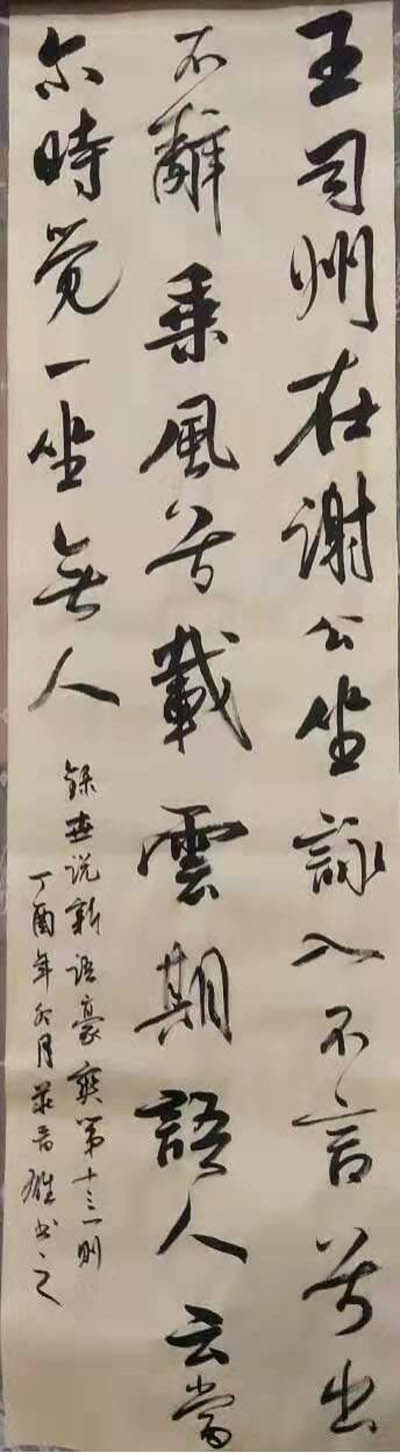 王司州在谢公坐詠入不言兮出
不辭乘風兮載雲期語人云當
尔時觉一坐無人
録世说新语豪爽第十三一则
丁酉年月书之